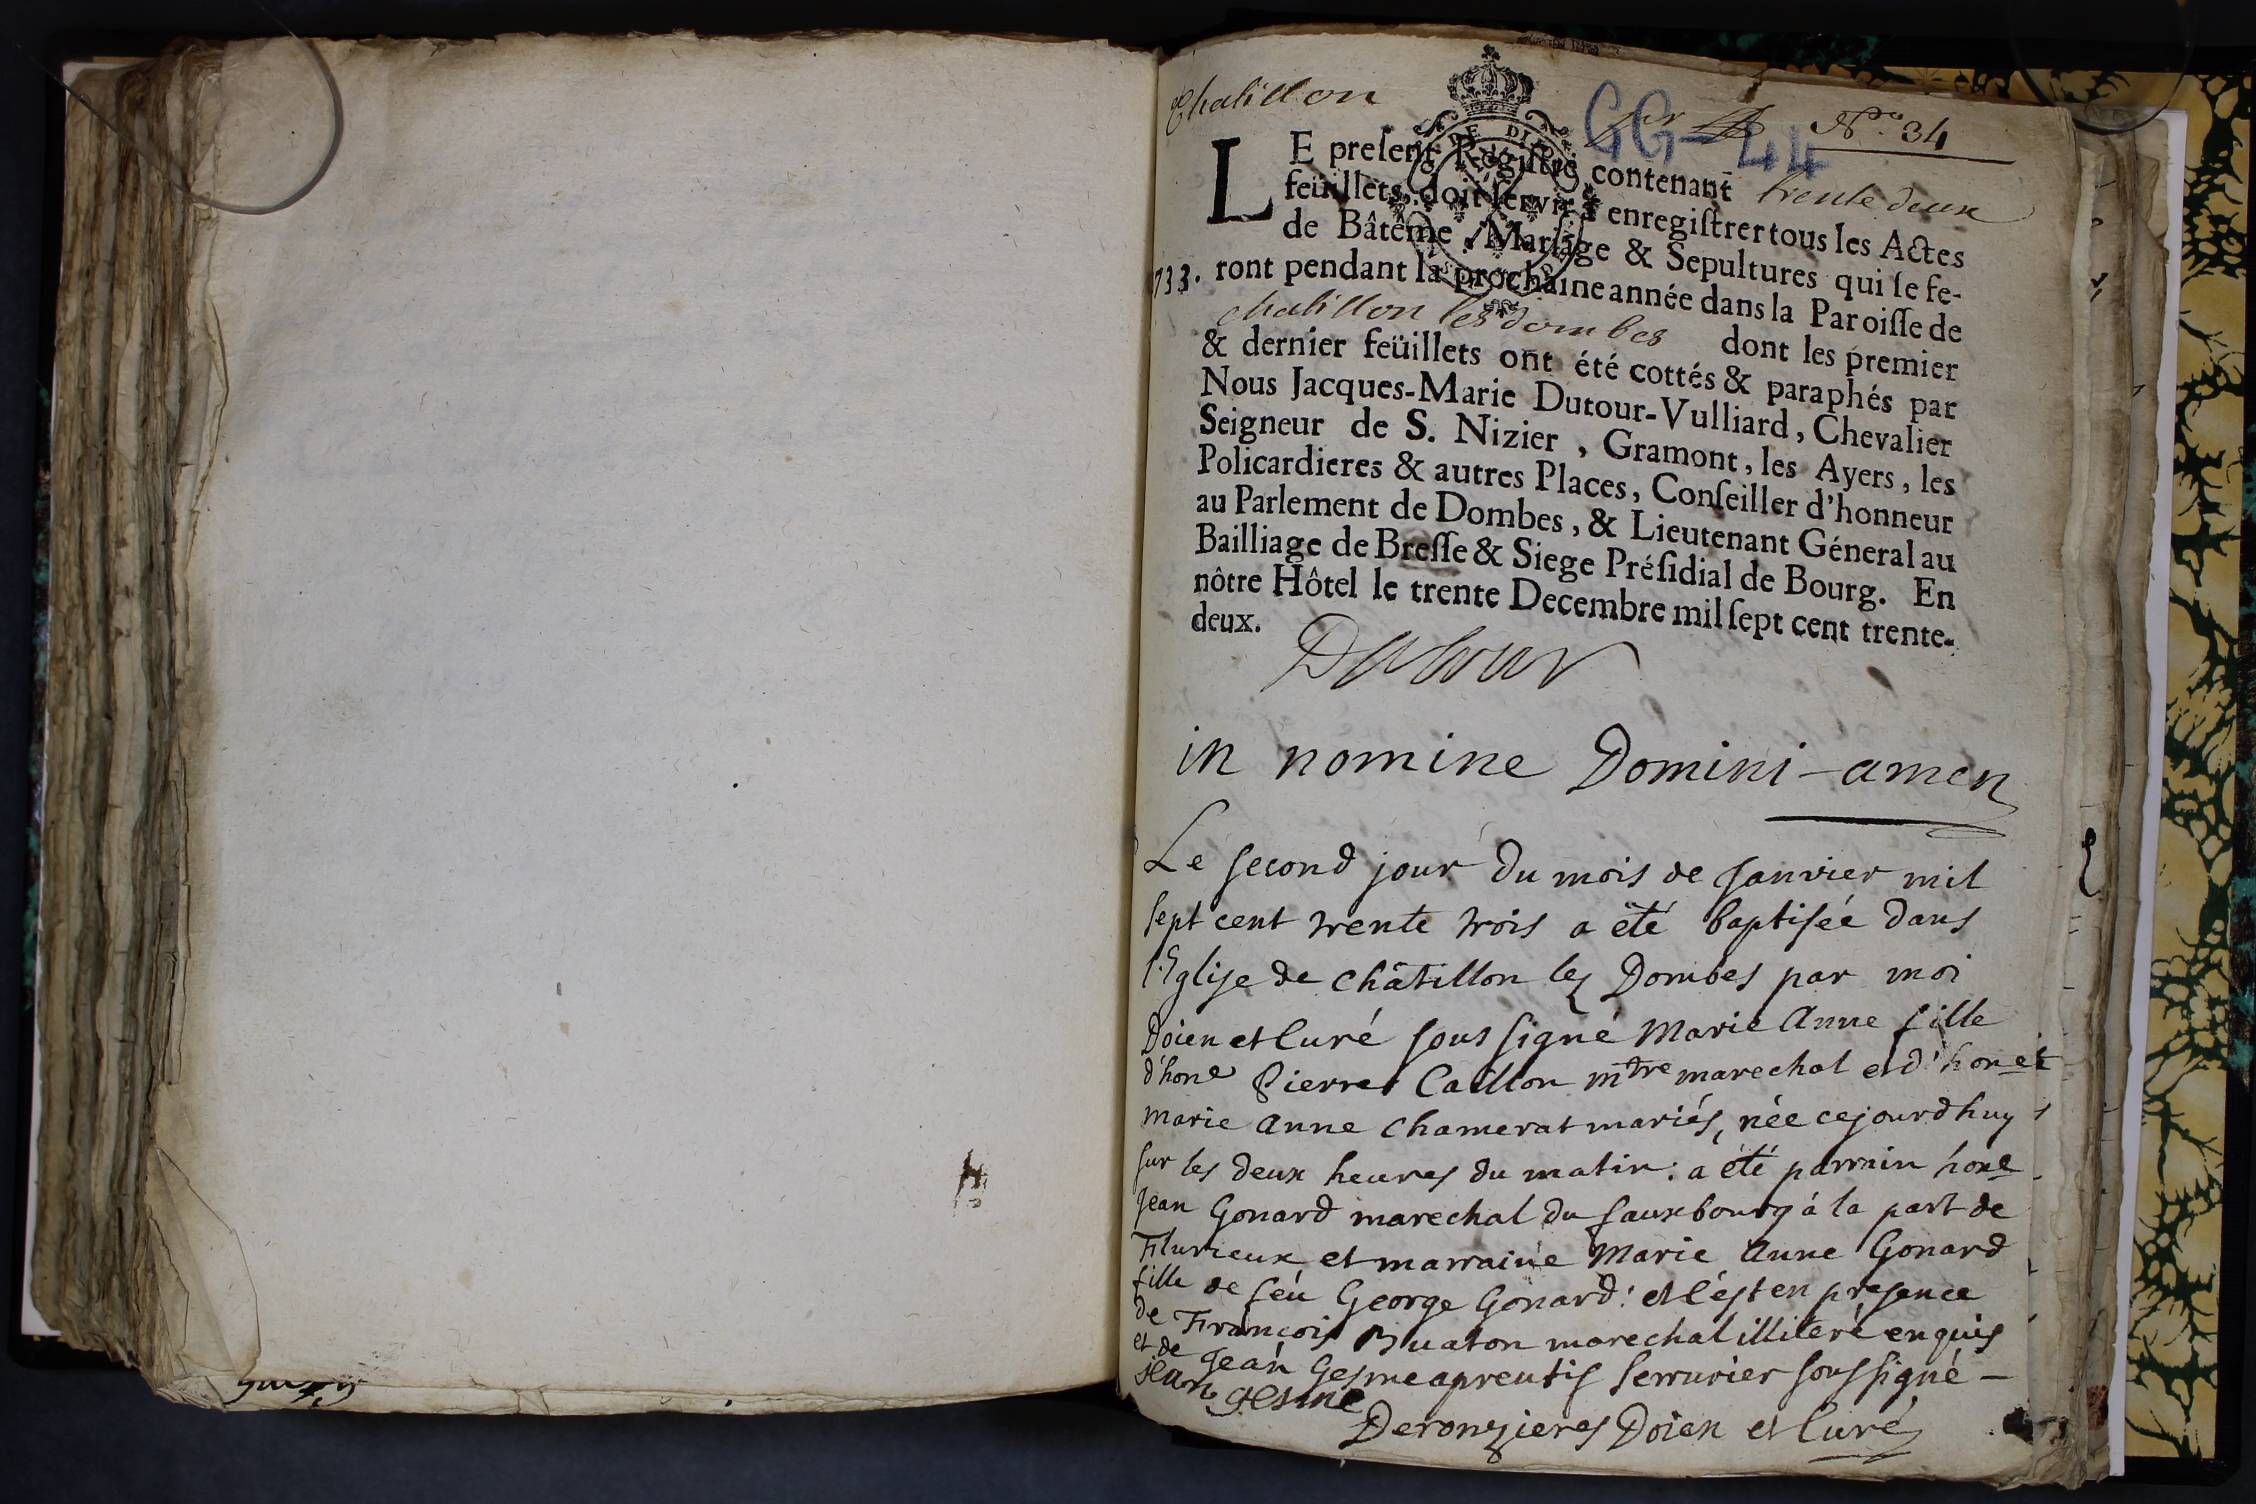 Chatillon
GG-44
No. 34
LE present Registre contenant trente deux
feüillets, doit servir à enregistrer tous les Actes
de Bâtême, Mariage & Sepultures qui se fe-
1733. ront pendant la prochaine année dans la Paroisse de
chatillon les dombes dont les premier
& dernier feüillets ont été cottés & paraphés par
Nous Jacques-Marie Dutour-Vulliard, Chevalier
Seigneur de S. Nizier, Gramont, les Ayers, les
Policardieres & autres Places, Conseiller d'honneur
au Parlement de Dombes, & Lieutenant Géneral au
Bailliage de Bresse & Siege Présidial de Bourg. En
nôtre Hôtel le trente Decembre mil sept cent trente-
deux.
Dutour
in nomine Domini - amen
Le second jour du mois de Janvier mil
sept cent trente trois a été baptisée dans
l'Eglise de Châtillon lez Dombes par moi
Doien et Curé sous signé Marie Anne fille
d'hone Pierre Caillon mtre marechal et d'honet
Marie Anne Chamerat mariés, née cejourdhuy
sur les deux heures du matin: a été parrain hone
Jean Gonard marechal du fauxbourg à la part de
Flurieux et marraine Marie Anne Gonard
fille de féu George Gonard: et c'est en presence
de François Buaton marechal illiteré enquis
et de Jean Gesme aprentis serrurier soussigné -
jean gesme
Deronzieres Doien et Curé